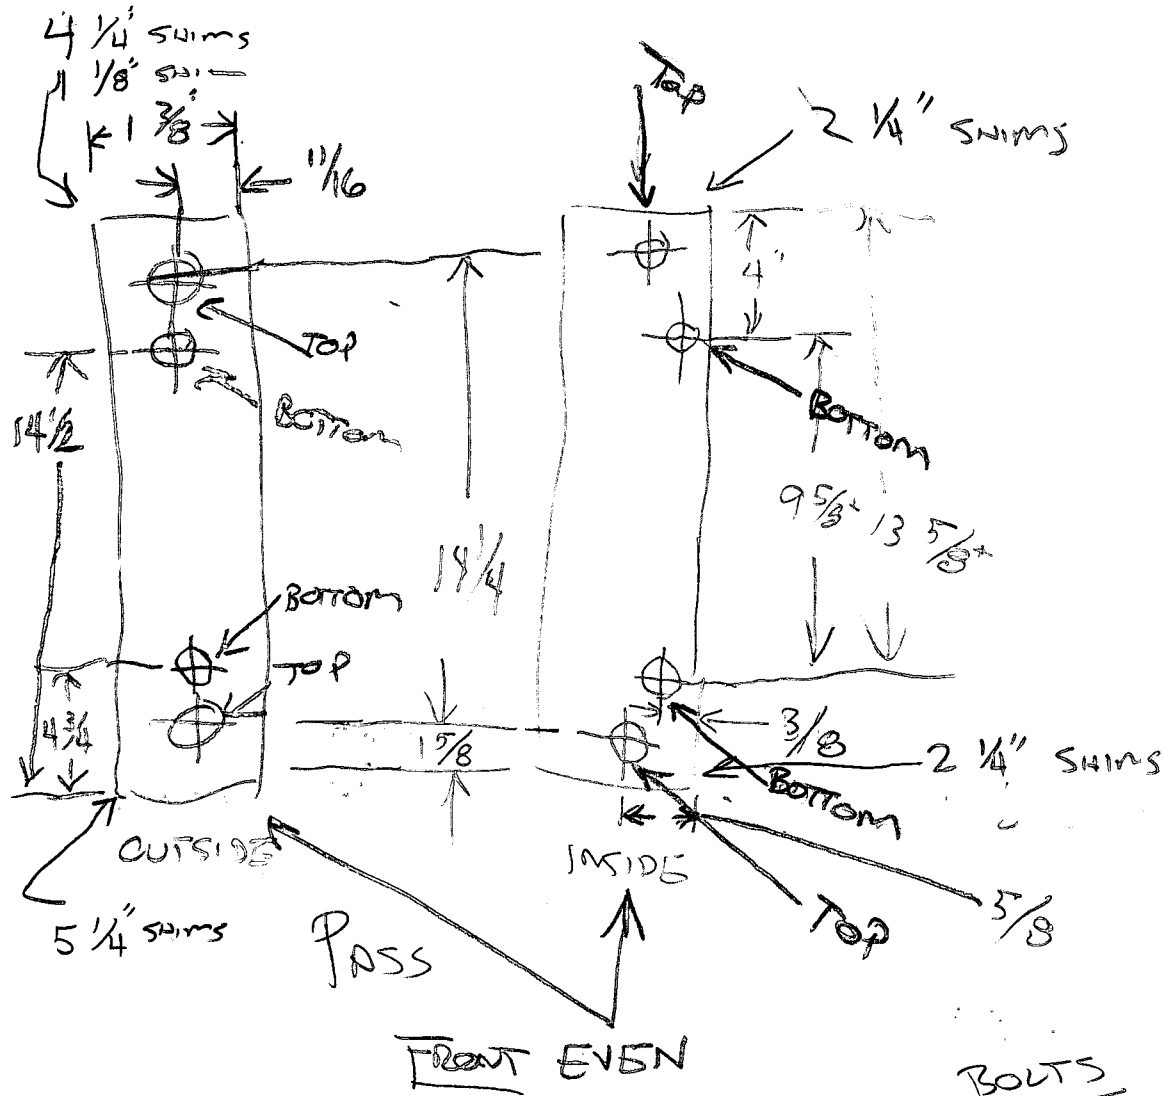 4 1/4" SHIMS
1 1/8" SHIM
1 3/8"
11/16
TOP
2 1/4" SHIMS
4"
TOP
14 1/2
BOTTOM
BOTTOM
9 5/8+
13 5/8+
14 1/4
BOTTOM
TOP
4 3/4
1 5/8
3/8
2 1/4" SHIMS
BOTTOM
OUTSIDE
INSIDE
5/8
TOP
5 1/4" SHIMS
PASS
FRONT EVEN
BOLTS